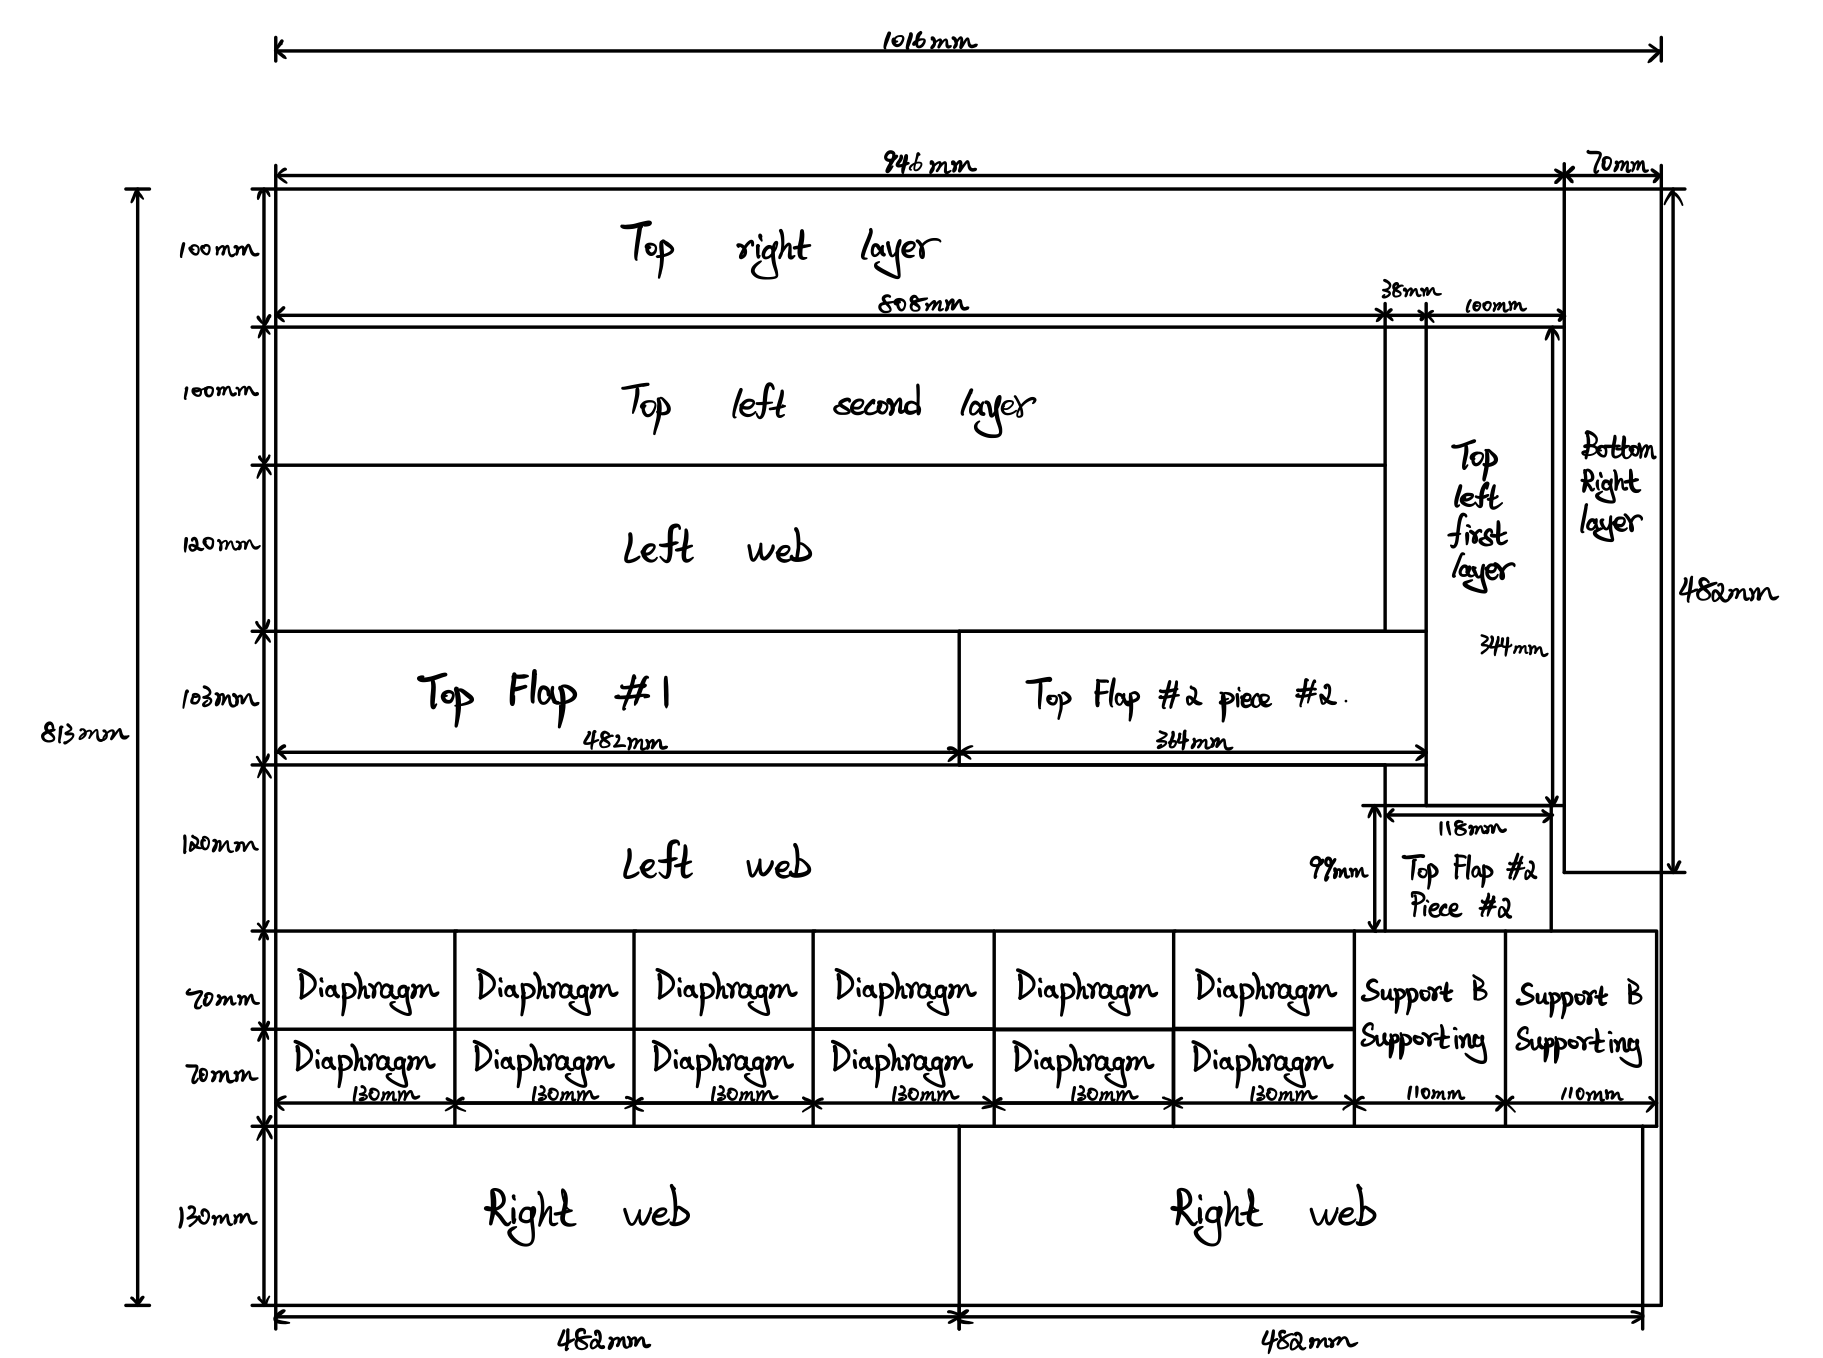 1016mm
946mm
70mm
100mm
Top right layer
808mm
38mm
100mm
100mm
Top left second layer
Top
left
first
layer
Bottom
Right
layer
120mm
Left web
482mm
344mm
103mm
Top Flap #1
Top Flap #2 piece #2.
482mm
364mm
813mm
120mm
Left web
118mm
99mm
Top Flap #2
Piece #2
70mm
Diaphragm Diaphragm Diaphragm Diaphragm Diaphragm Diaphragm
Support B
Supporting
Support B
Supporting
70mm
Diaphragm Diaphragm Diaphragm Diaphragm Diaphragm Diaphragm
130mm 130mm 130mm 130mm 130mm 130mm 110mm 110mm
130mm
Right web
Right web
482mm
482mm